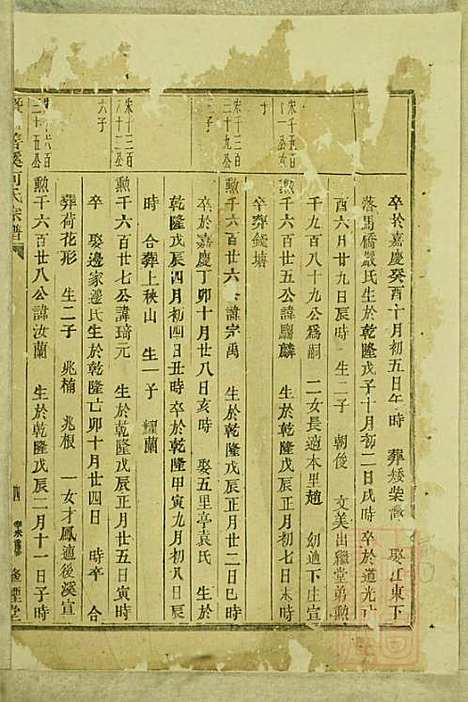 卒於嘉慶癸酉十月初五日午時 葬矮柴 娶江東下
落馬橋嚴氏生於乾隆戊子十月初二日戌時 卒於道光
酉六月廿九日辰時 生二子 朝俊 文美出繼堂弟勲
千九百八十九公為嗣 二女長適本里趙 幼適下庄宣
勲千六百廿五公諱 麟 生於乾隆戊辰正月初七日未時
卒葬錢塘
勲千六百廿六 諱宗禹 生於乾隆戊辰正月廿二日巳時
卒於嘉慶丁卯十月廿八日亥時 娶五里亭袁氏 生於
乾隆戊辰四月初四日丑時 卒於乾隆甲寅九月初八日辰
時 合葬上秧山 生一子 耀蘭
勲千六百廿七公諱琦元 生於乾隆戊辰正月廿五日寅時
卒 娶邊家邊氏生於乾隆己卯十月廿四日 時卒 合
葬荷花形 生二子 兆楠 兆根 一女才鳳適後溪宣
勲千六百廿八公諱汝蘭 生於乾隆戊辰二月十一日子時
宋千三百
三十九公
子
宋千三百
八十二公
六子
六百
三十五公
氏宗譜